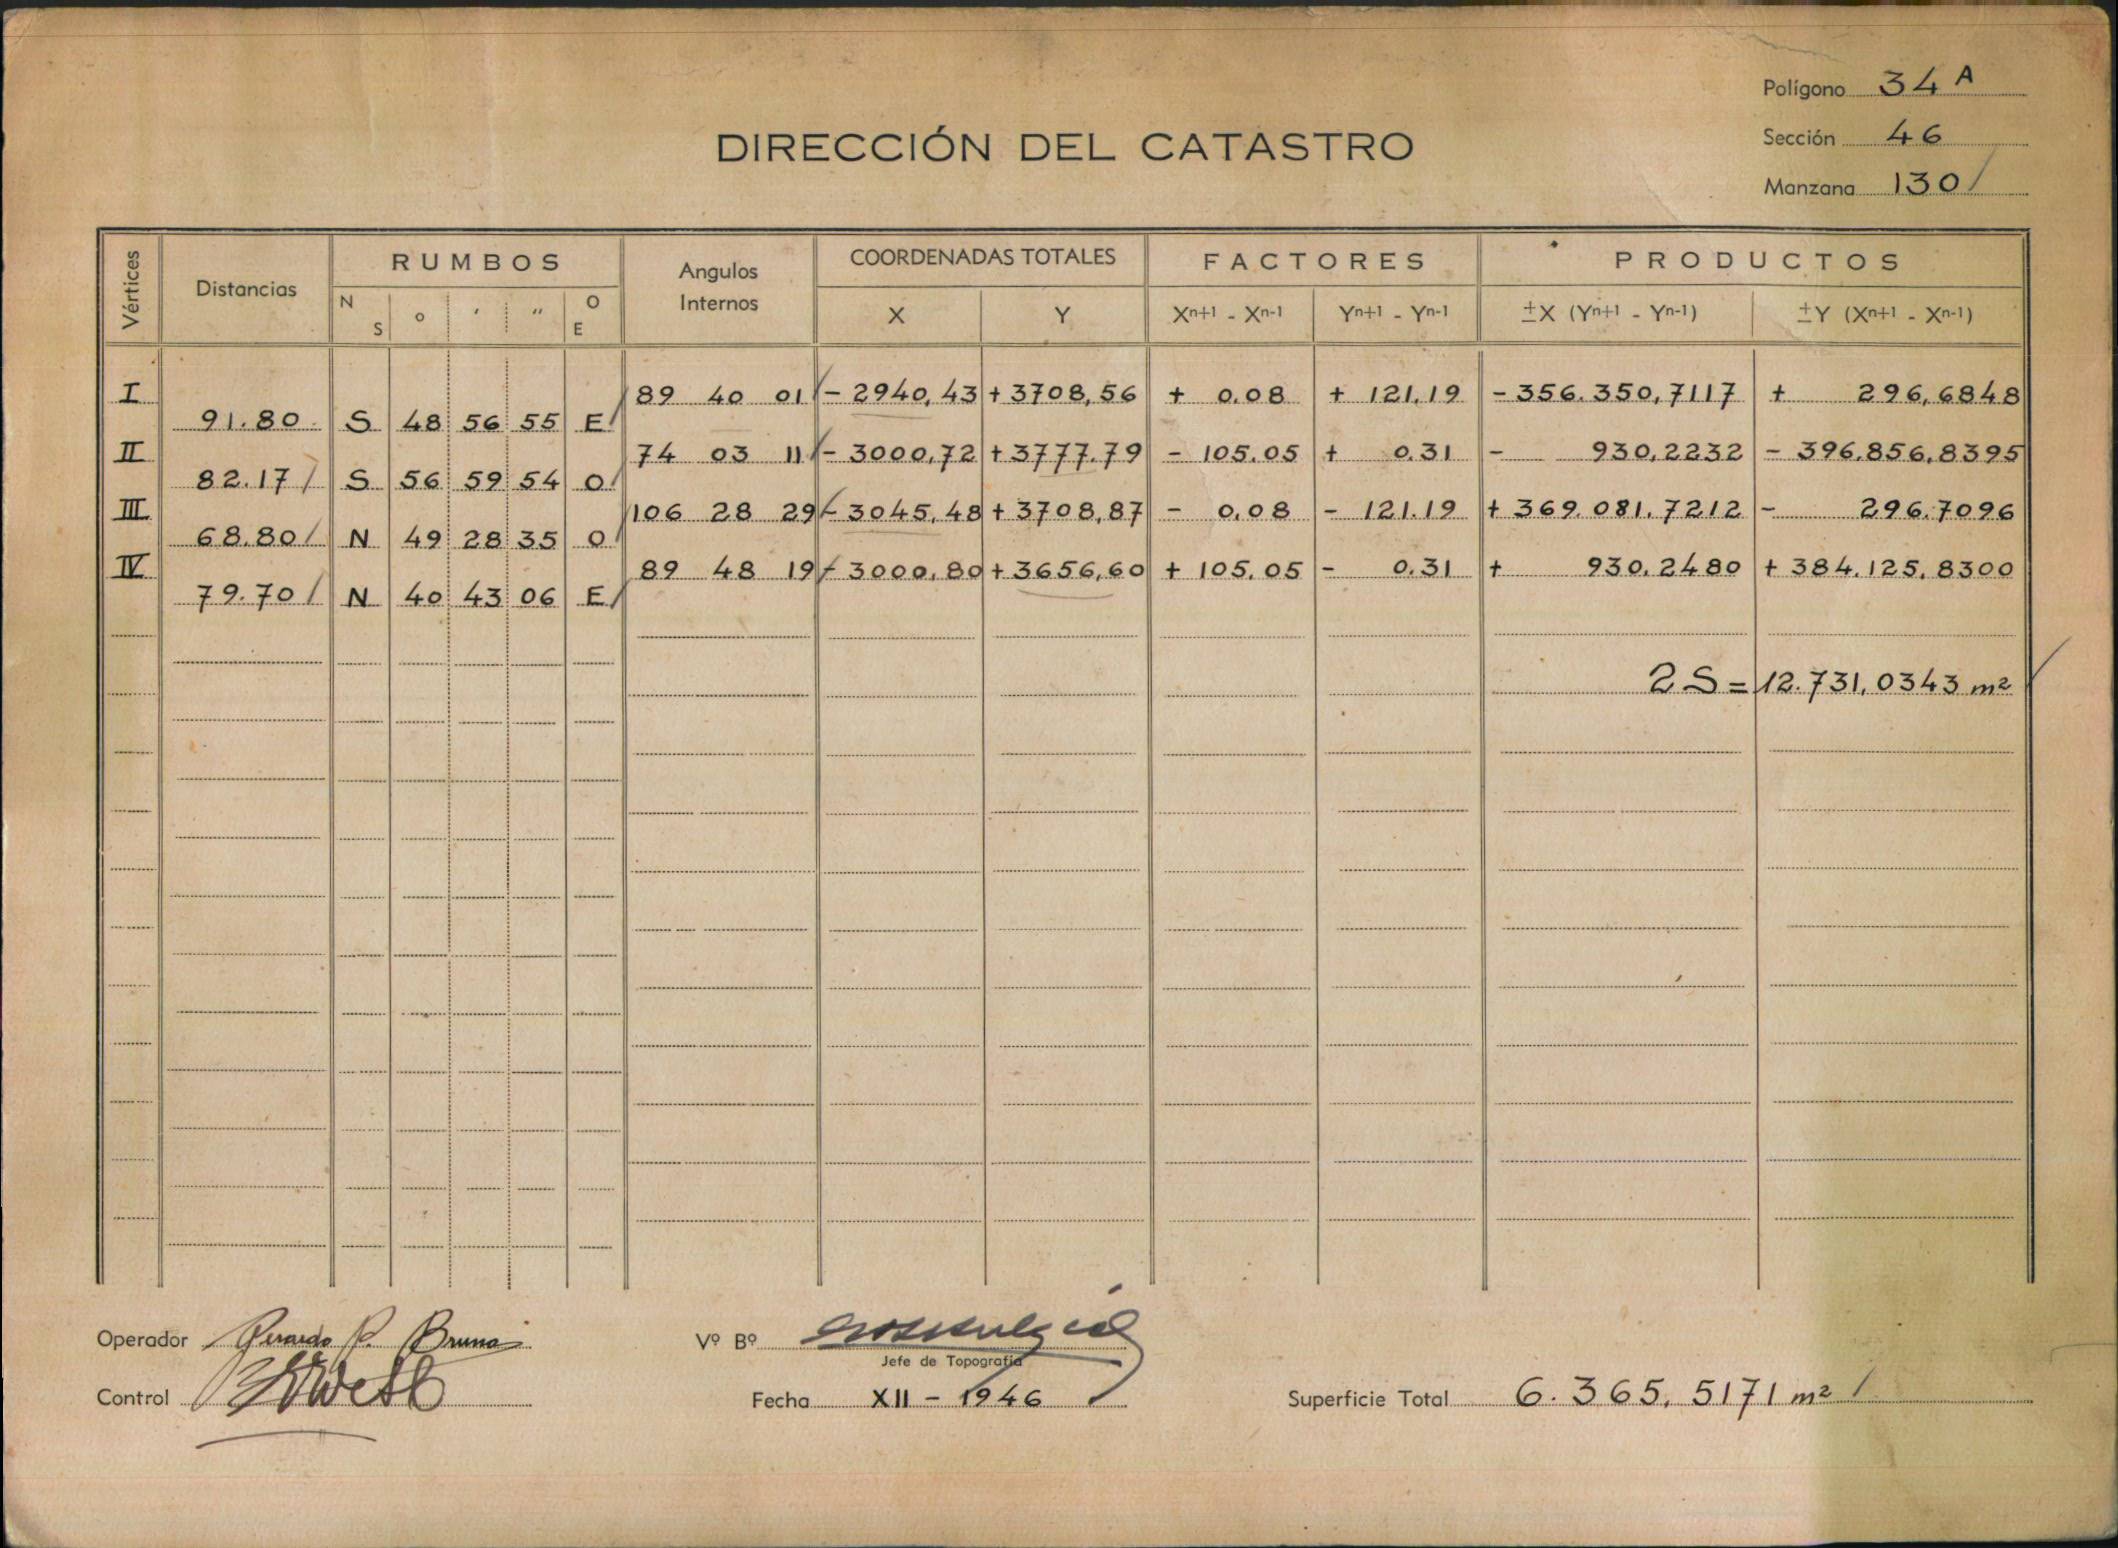 Polígono 34 A
Sección 46
Manzana 130/
DIRECCIÓN DEL CATASTRO
Vértices Distancias RUMBOS Angulos Internos COORDENADAS TOTALES FACTORES PRODUCTOS
N S o ' " O E X Y Xn+1 - Xn-1 Yn+1 - Yn-1 ±X (Yn+1 - Yn-1) ±Y (Xn+1 - Xn-1)
I 89 40 01 - 2940,43 + 3708,56 + 0.08 + 121.19 - 356.350,7117 + 296,6848
91.80 S 48 56 55 E
II 74 03 11 - 3000,72 + 3777.79 - 105.05 + 0.31 - 930,2232 - 396.856,8395
82.17 S 56 59 54 O
III 106 28 29 - 3045,48 + 3708,87 - 0,08 - 121.19 + 369.081,7212 - 296.7096
68.80 N 49 28 35 O
IV 89 48 19 - 3000,80 + 3656,60 + 105.05 - 0.31 + 930.2480 + 384.125,8300
79.70 N 40 43 06 E
2 S = 12.731,0343 m²
Operador Gerardo P. Bruno
Vº Bº
Jefe de Topografía
Control
Fecha XII - 1946
Superficie Total 6.365,5171 m²